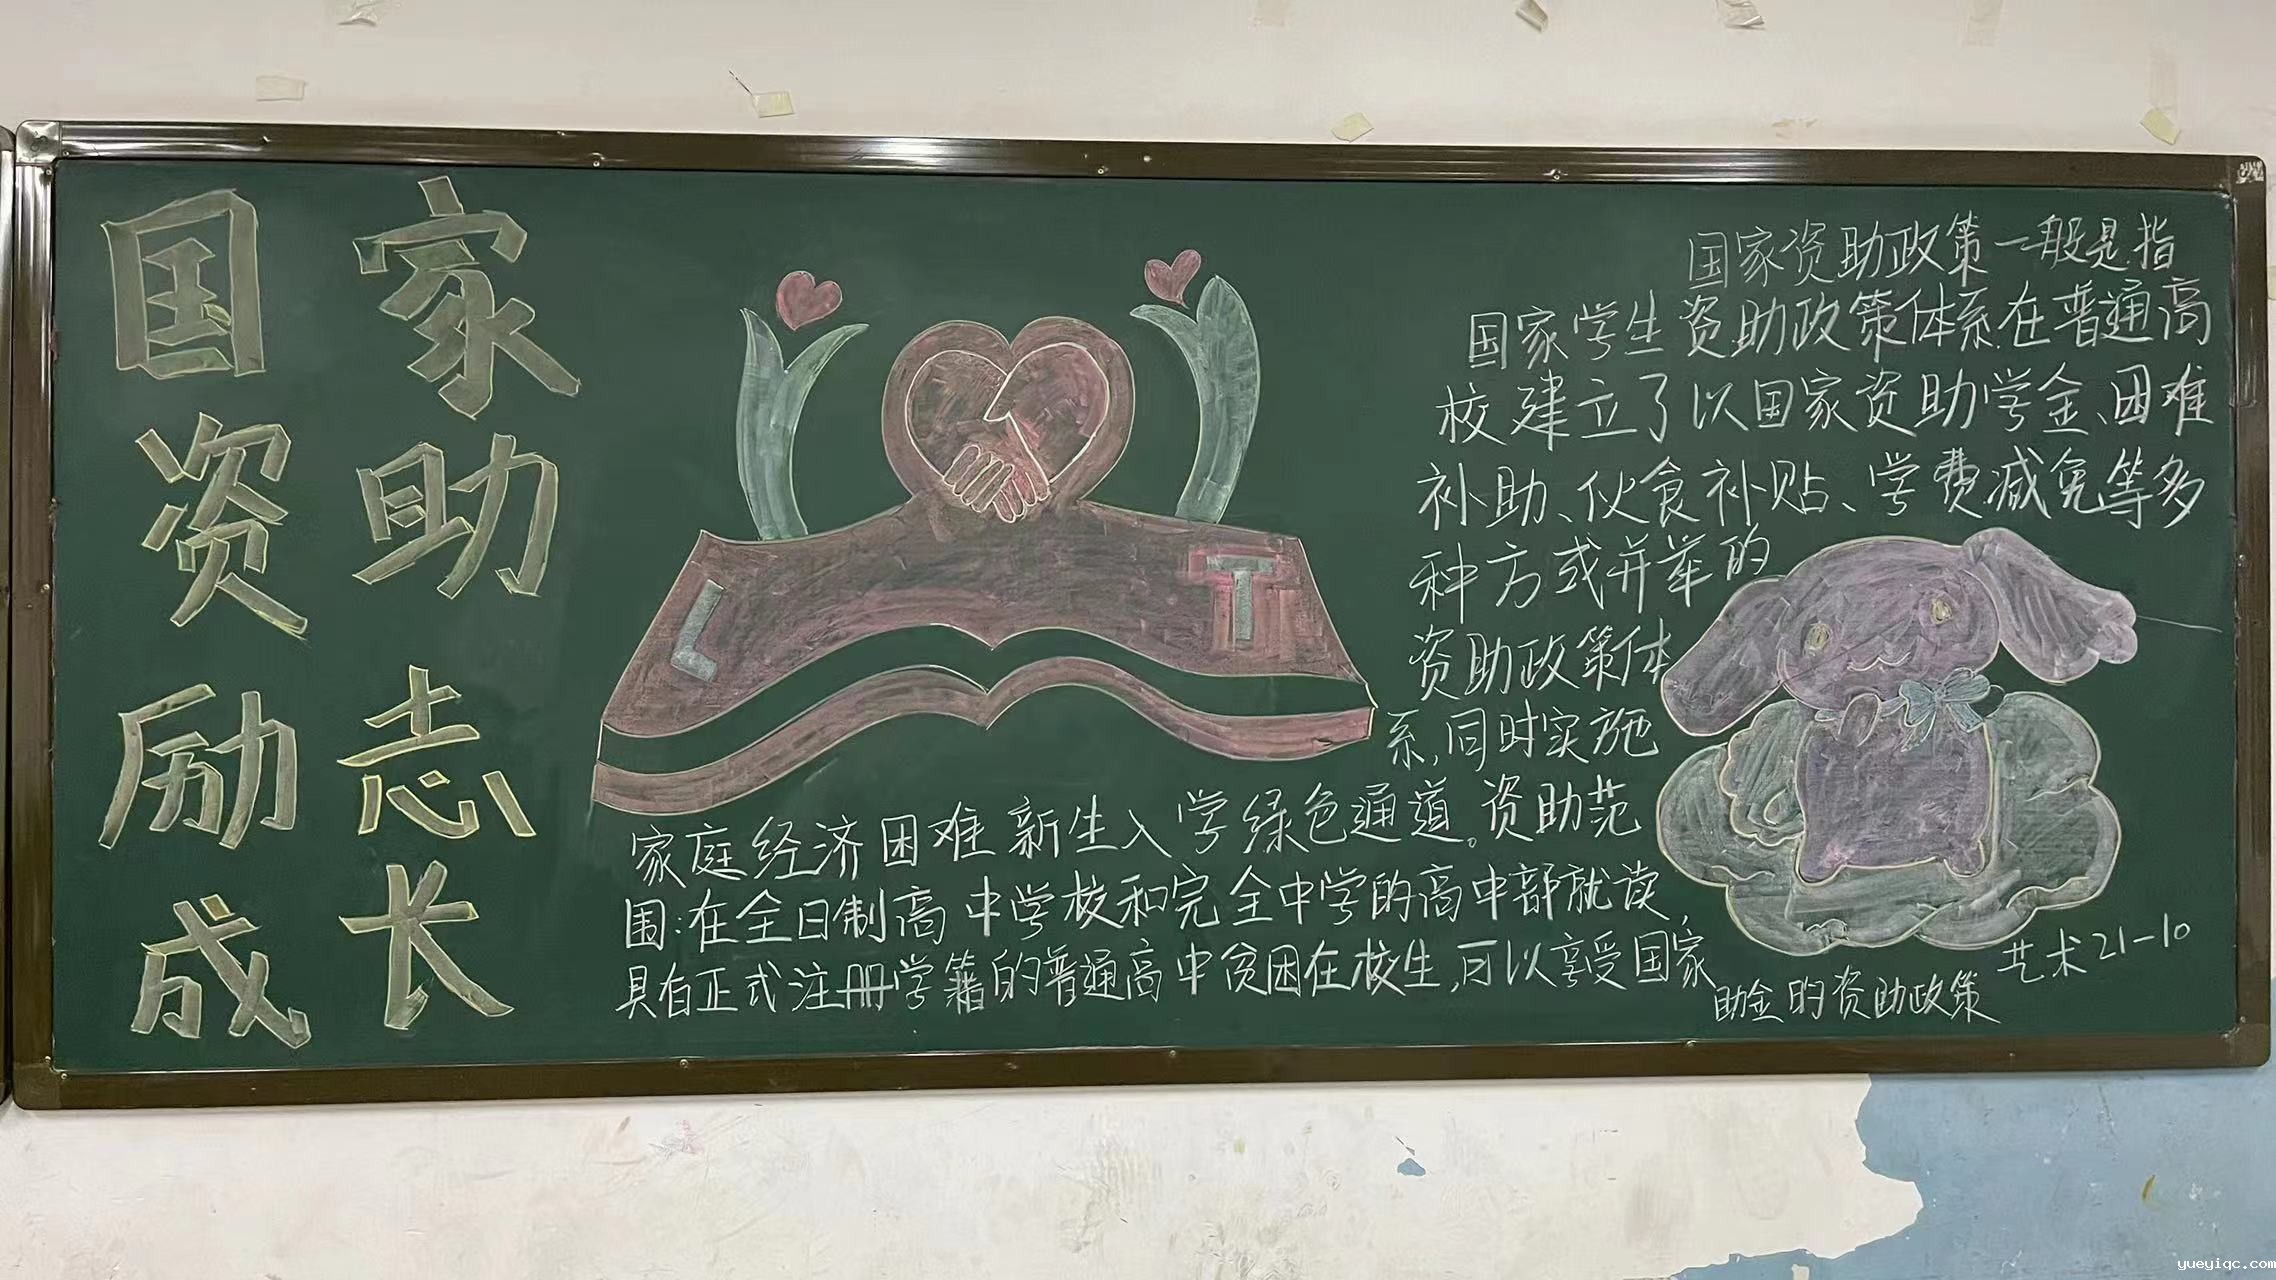 国家
资助
励志
成长
L T
国家资助政策一般是指
国家学生资助政策体系在普通高
校建立了以国家资助学金、困难
补助、伙食补贴、学费减免等多
种方式并举的
资助政策体
系,同时实施
家庭经济困难新生入学绿色通道。资助范
围:在全日制高中学校和完全中学的高中部就读,
具有正式注册学籍的普通高中贫困在校生,可以享受国家
助金的资助政策
艺术21-10
yueyiqc.com